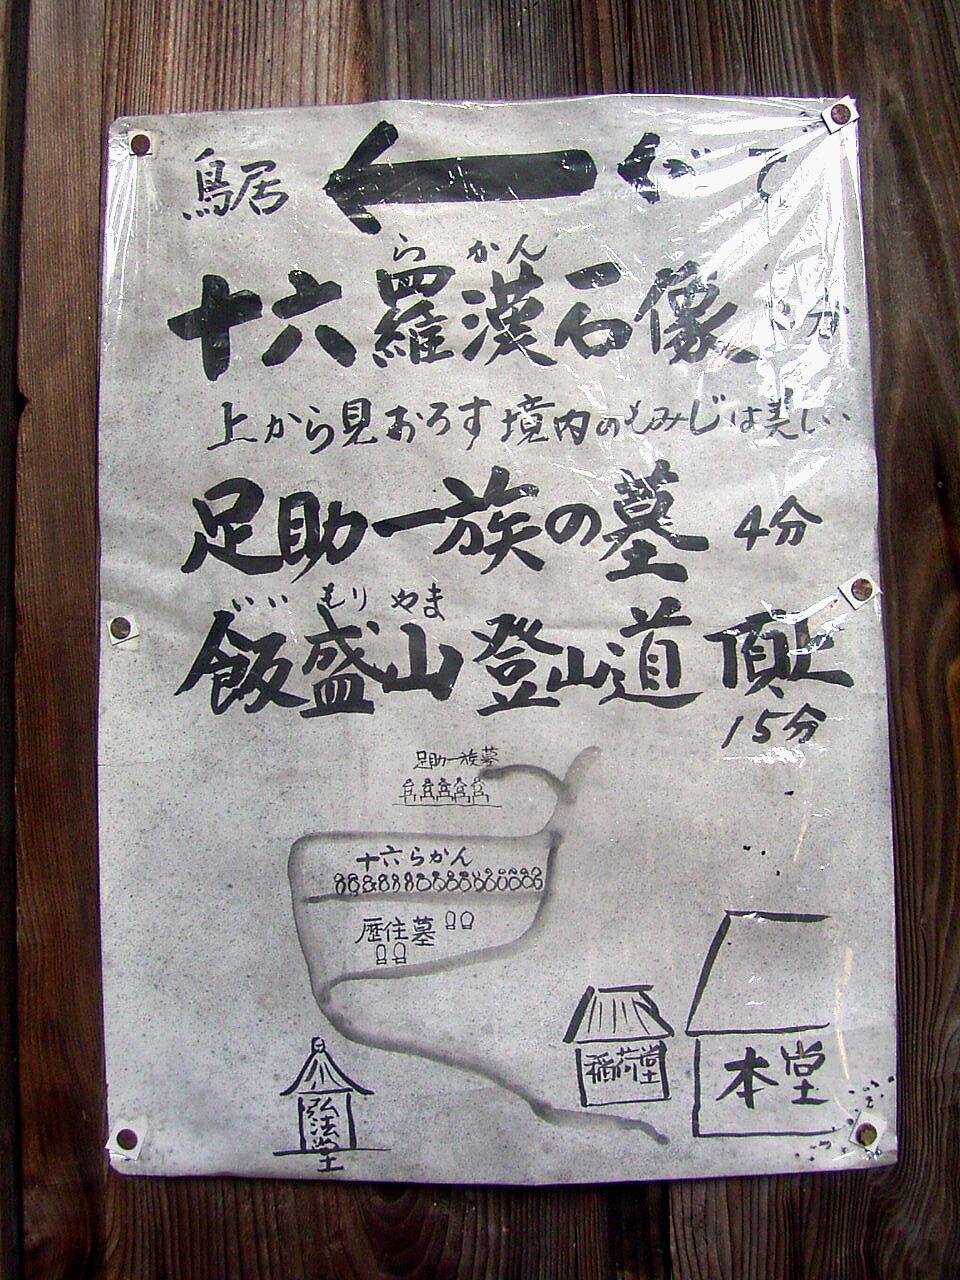 鳥居 ← くぐって
らかん
十六羅漢石像 分
上から見おろす境内のもみじは美しい
足助一族の墓 4分
いいもりやま
飯盛山登山道 頂上
15分
足助一族墓
十六らかん
歴住墓
稲荷堂
本堂
弘法堂